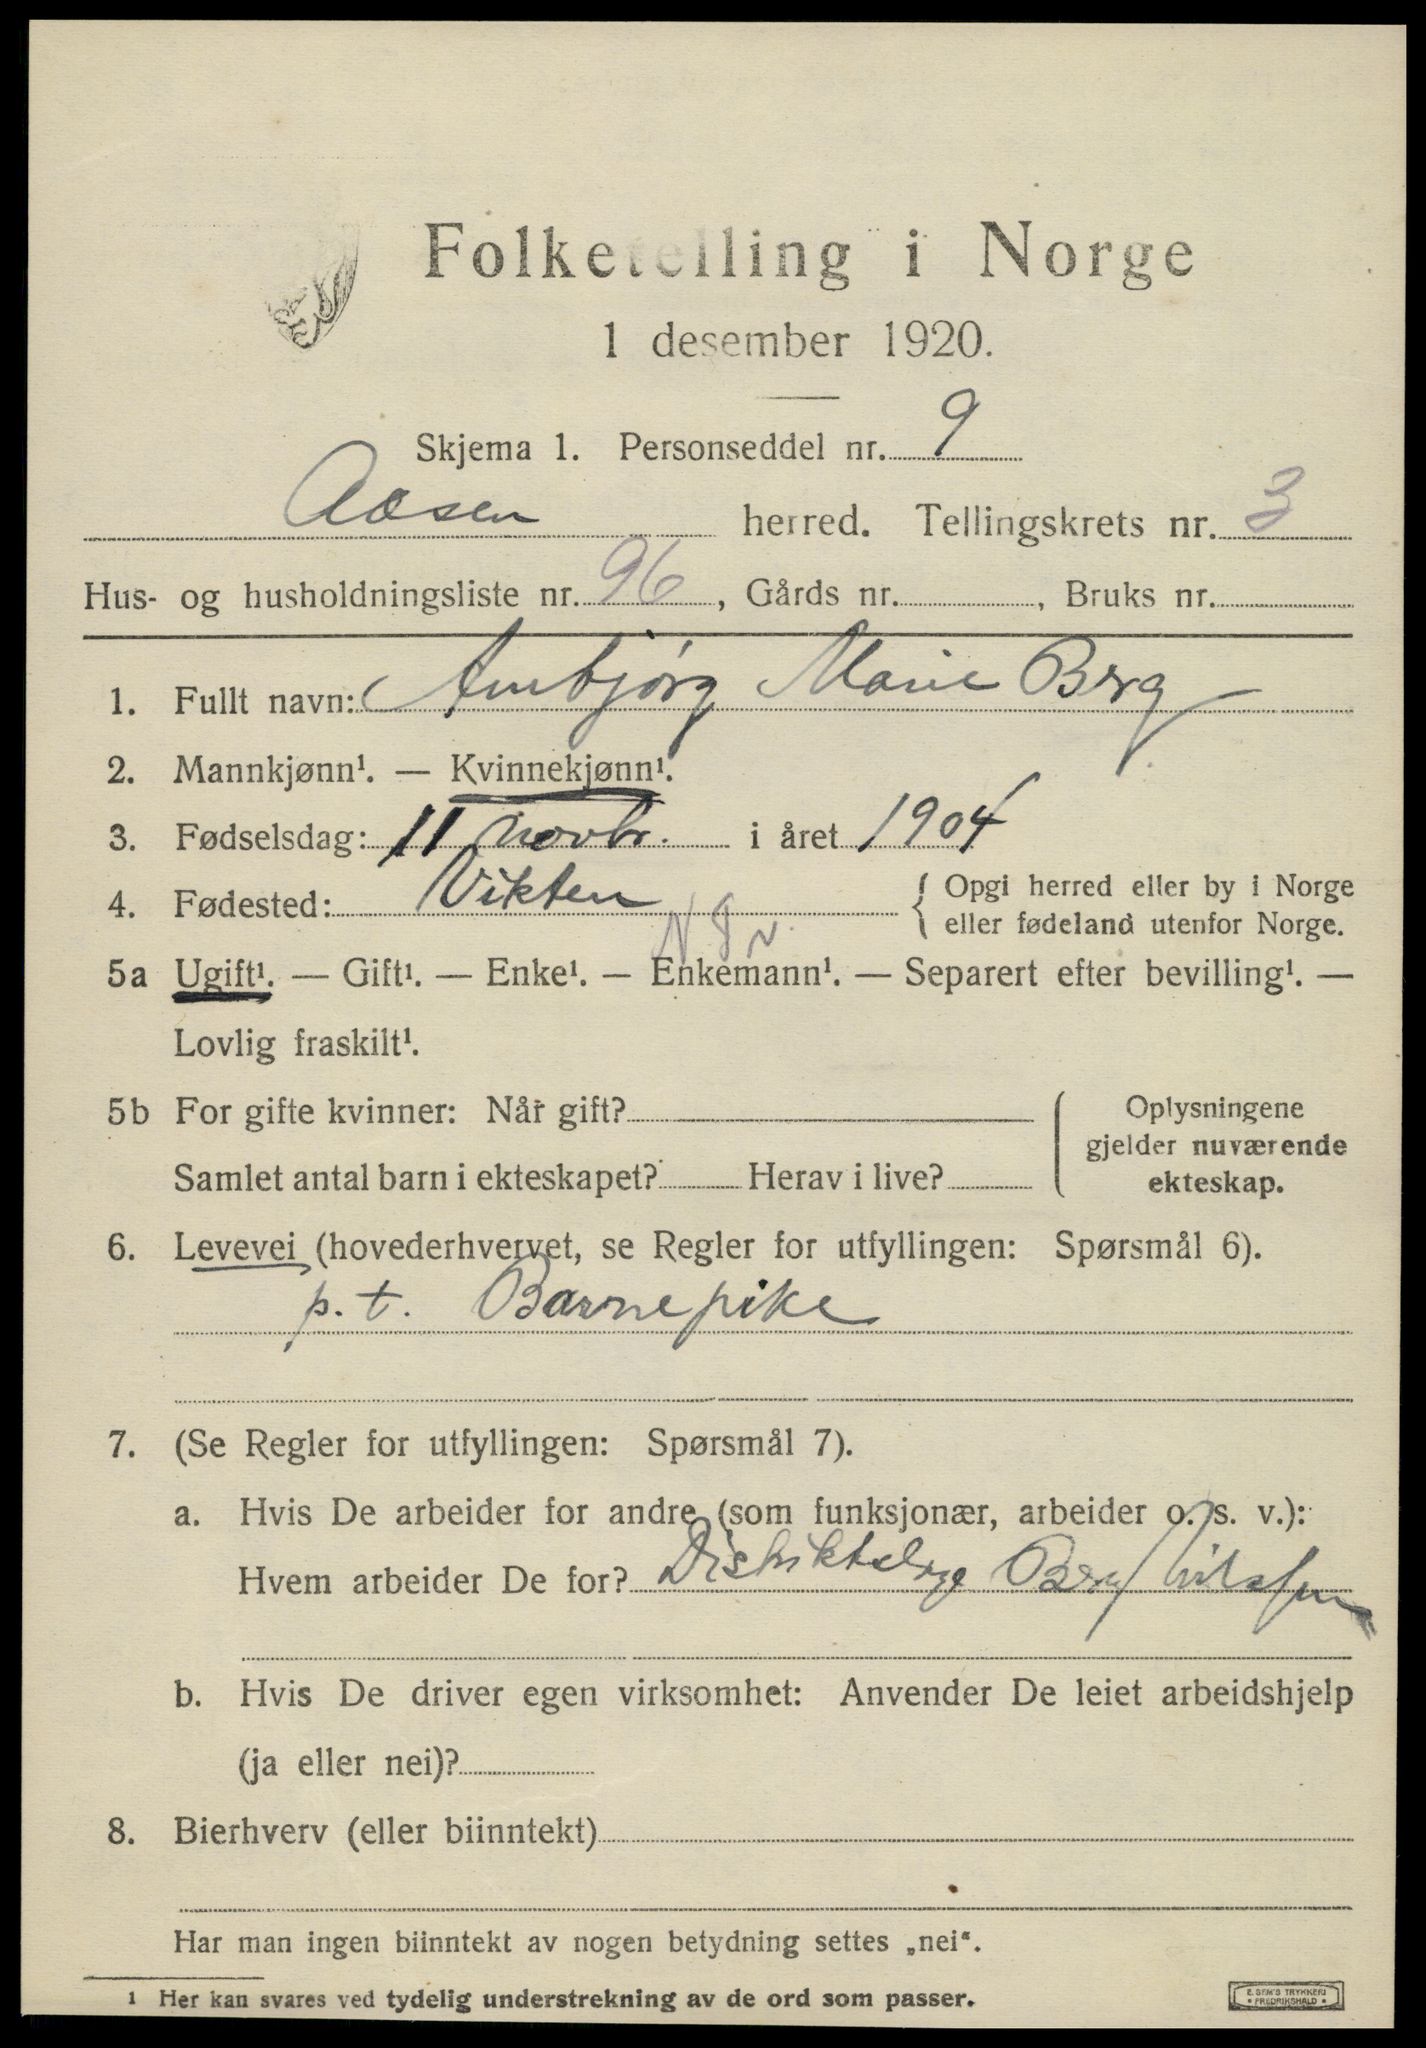 Folketelling i Norge
1 desember 1920.
Skjema 1. Personseddel nr. 9
Aasen herred. Tellingskrets nr. 3
Hus- og husholdningsliste nr. 96, Gårds nr. , Bruks nr.
1. Fullt navn: Ambjørg Marie Berg
2. Mannkjønn¹. — Kvinnekjønn¹.
3. Fødselsdag: 11 novbr. i året 1904
4. Fødested: Vikten { Opgi herred eller by i Norge
eller fødeland utenfor Norge.
5a Ugift¹. — Gift¹. — Enke¹. — Enkemann¹. — Separert efter bevilling¹. —
Lovlig fraskilt¹.
5b For gifte kvinner: Når gift? Oplysningene
gjelder nuværende
Samlet antal barn i ekteskapet? Herav i live? ekteskap.
6. Levevei (hovederhvervet, se Regler for utfyllingen: Spørsmål 6).
p. t. Barnepike
7. (Se Regler for utfyllingen: Spørsmål 7).
a. Hvis De arbeider for andre (som funksjonær, arbeider o. s. v.):
Hvem arbeider De for? Distriktslæge Berg
b. Hvis De driver egen virksomhet: Anvender De leiet arbeidshjelp
(ja eller nei)?
8. Bierhverv (eller biinntekt)
Har man ingen biinntekt av nogen betydning settes „nei“.
¹ Her kan svares ved tydelig understrekning av de ord som passer.
E. SEM'S TRYKKERI
• FREDRIKSHALD •